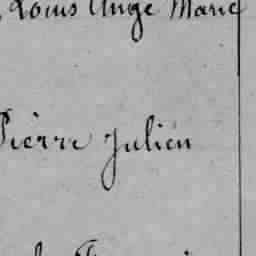 Louis Ange Marie
Pierre Julien